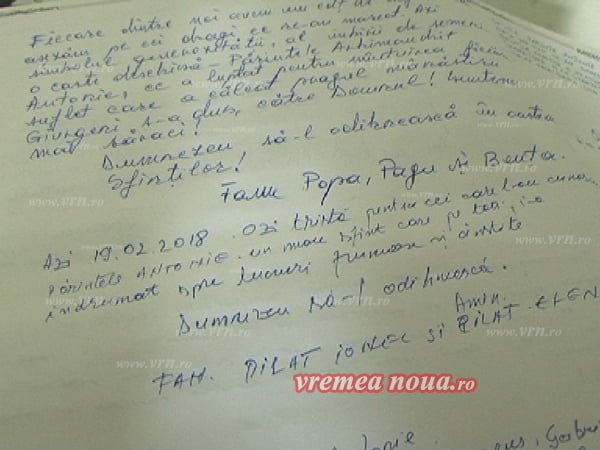 Fiecare dintre noi avem un colț de
așezăm pe cei dragi ce ne-au marcat. Azi
simbolul generozității, al iubirii de semeni
o carte deschisă - Părintele Arhimandrit
Antonie, ce a luptat pentru mântuirea fiecărui
suflet care a călcat pragul mănăstirii
Giurgeni s-a dus, către Domnul! Suntem
mai săraci!
Dumnezeu să-l odihnească în
Sfinților!
Fam Popa, Pagu și Benta.
Azi 19.02.2018 o zi tristă pentru cei care l-au cunos
părintele ANTONIE un mare sfânt care pe toți i-a
îndrumat spre lucruri frumoase și
Dumnezeu să-l odihnească.
Amin.
FAM. PILAT IONEL și PILAT ELEN
vremea noua.ro
www.VRN.ro